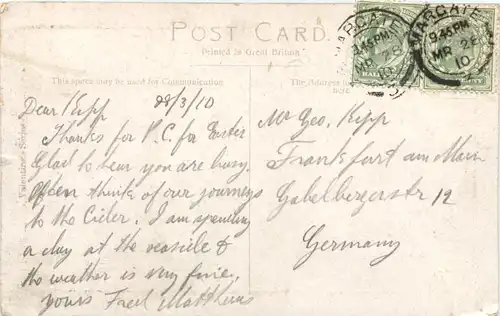 POST CARD.
Printed in Great Britain
This space may be used for Communication
The Address
here
MARGATE
9.45PM
MR 28
10
MARGATE
9.45PM
MR 28
10
HALF
Dear Kipp 28/3/10
Thanks for P.C. for Easter
Glad to hear you are busy.
Often think of our journeys
to the Cider. I am spending
a day at the seaside &
the weather is very fine.
yours Fred Matthews
Mr Geo. Kipp
Frankfurt am Main
Gabelbergerstr 12
Germany
Valentine's Series